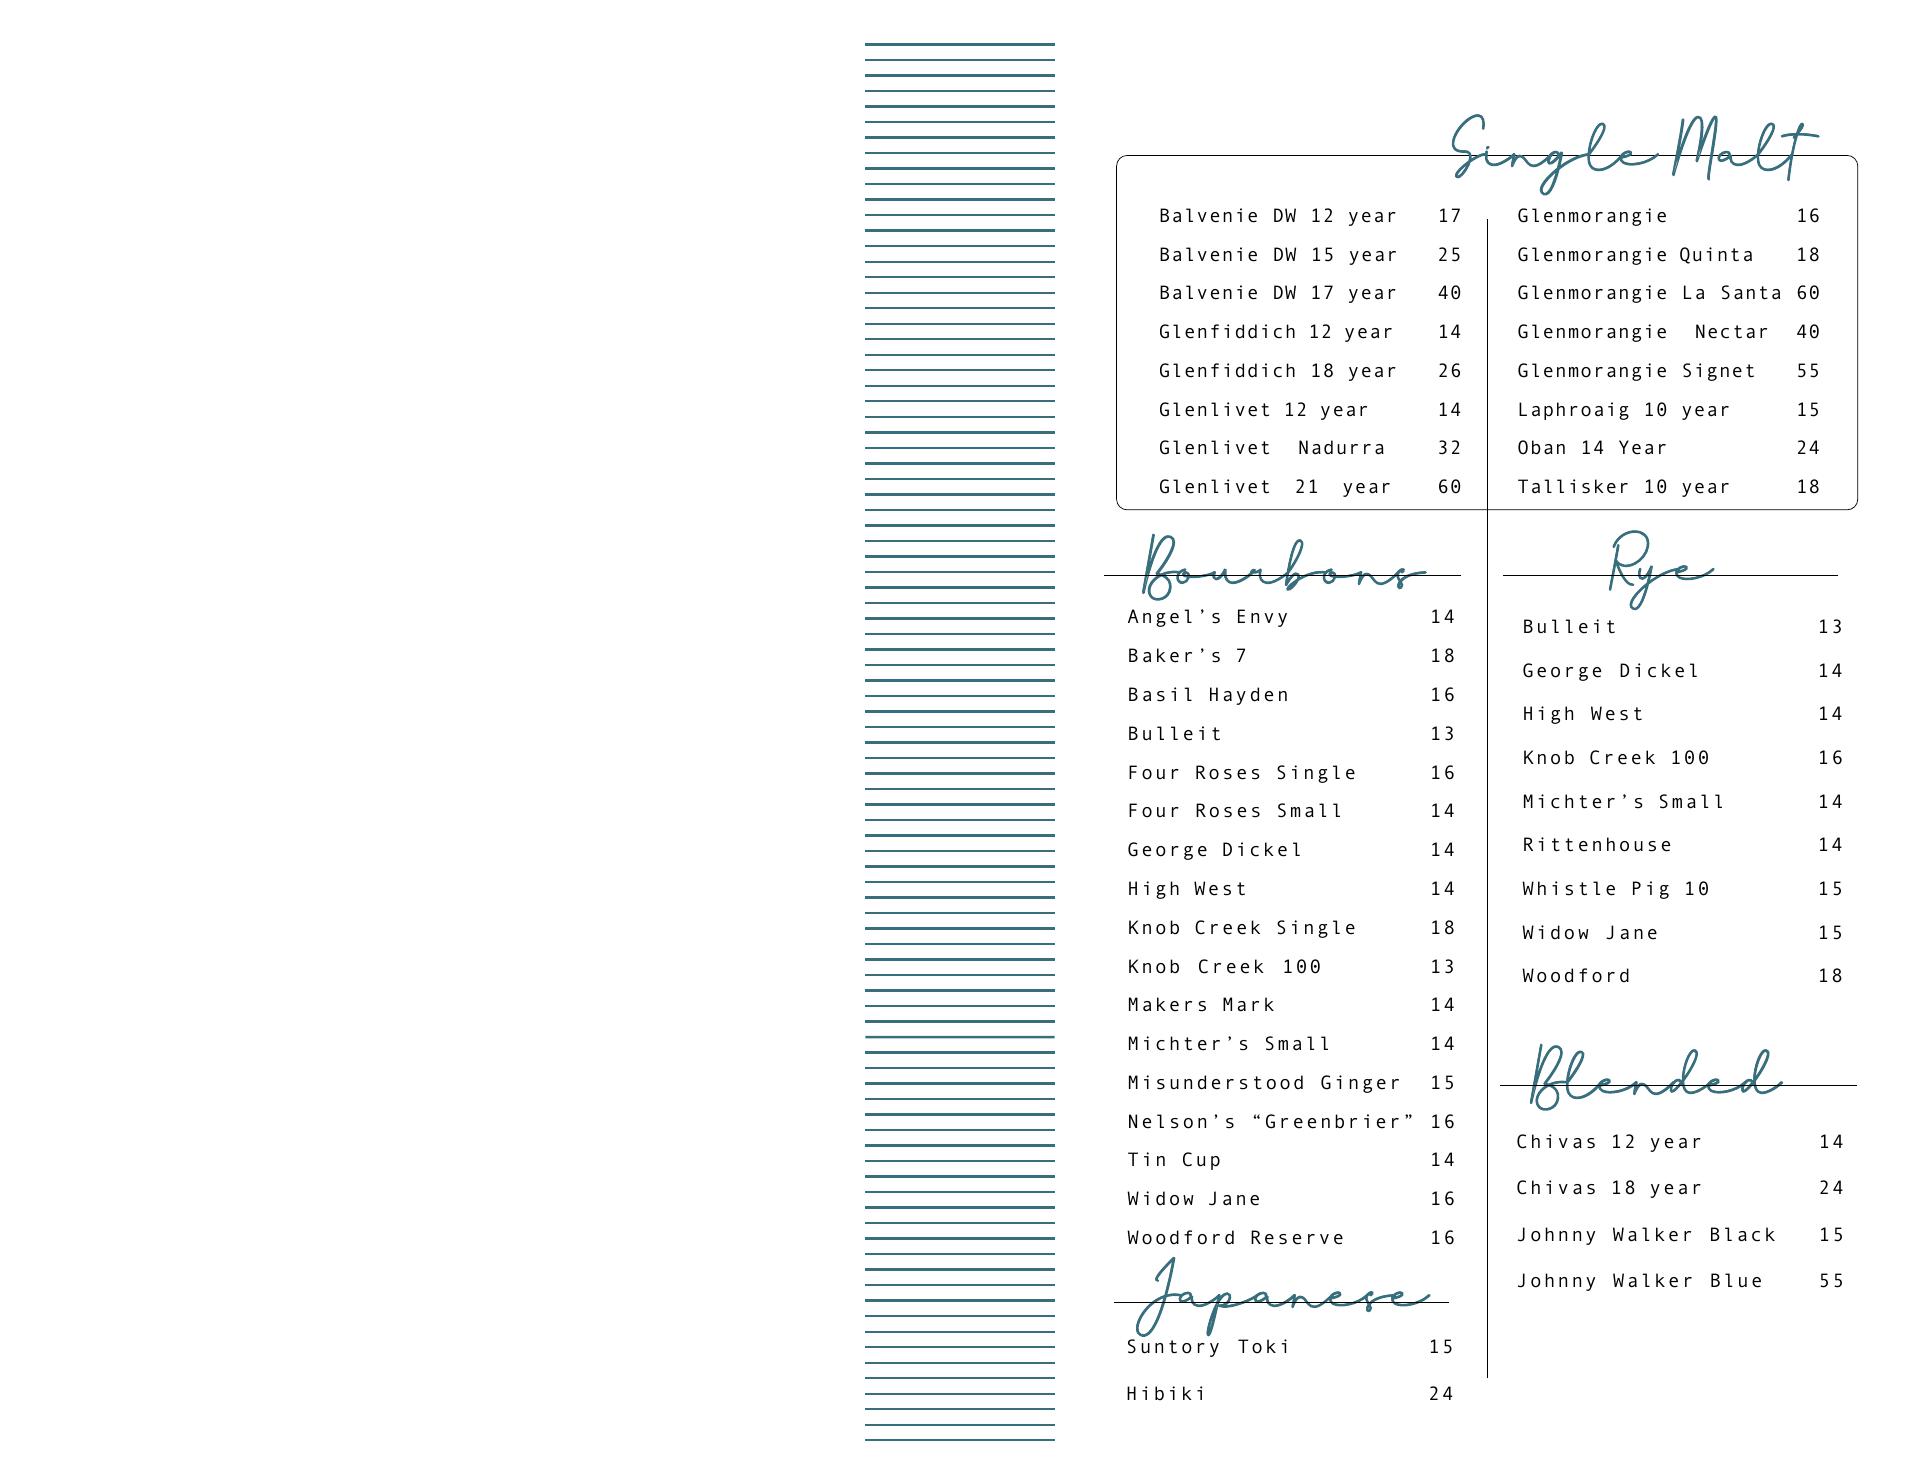 Single Malt
Balvenie DW 12 year 17
Balvenie DW 15 year 25
Balvenie DW 17 year 40
Glenfiddich 12 year 14
Glenfiddich 18 year 26
Glenlivet 12 year 14
Glenlivet Nadurra 32
Glenlivet 21 year 60
Glenmorangie 16
Glenmorangie Quinta 18
Glenmorangie La Santa 60
Glenmorangie Nectar 40
Glenmorangie Signet 55
Laphroaig 10 year 15
Oban 14 Year 24
Tallisker 10 year 18
Bourbons
Angel’s Envy 14
Baker’s 7 18
Basil Hayden 16
Bulleit 13
Four Roses Single 16
Four Roses Small 14
George Dickel 14
High West 14
Knob Creek Single 18
Knob Creek 100 13
Makers Mark 14
Michter’s Small 14
Misunderstood Ginger 15
Nelson’s “Greenbrier” 16
Tin Cup 14
Widow Jane 16
Woodford Reserve 16
Japanese
Suntory Toki 15
Hibiki 24
Rye
Bulleit 13
George Dickel 14
High West 14
Knob Creek 100 16
Michter’s Small 14
Rittenhouse 14
Whistle Pig 10 15
Widow Jane 15
Woodford 18
Blended
Chivas 12 year 14
Chivas 18 year 24
Johnny Walker Black 15
Johnny Walker Blue 55